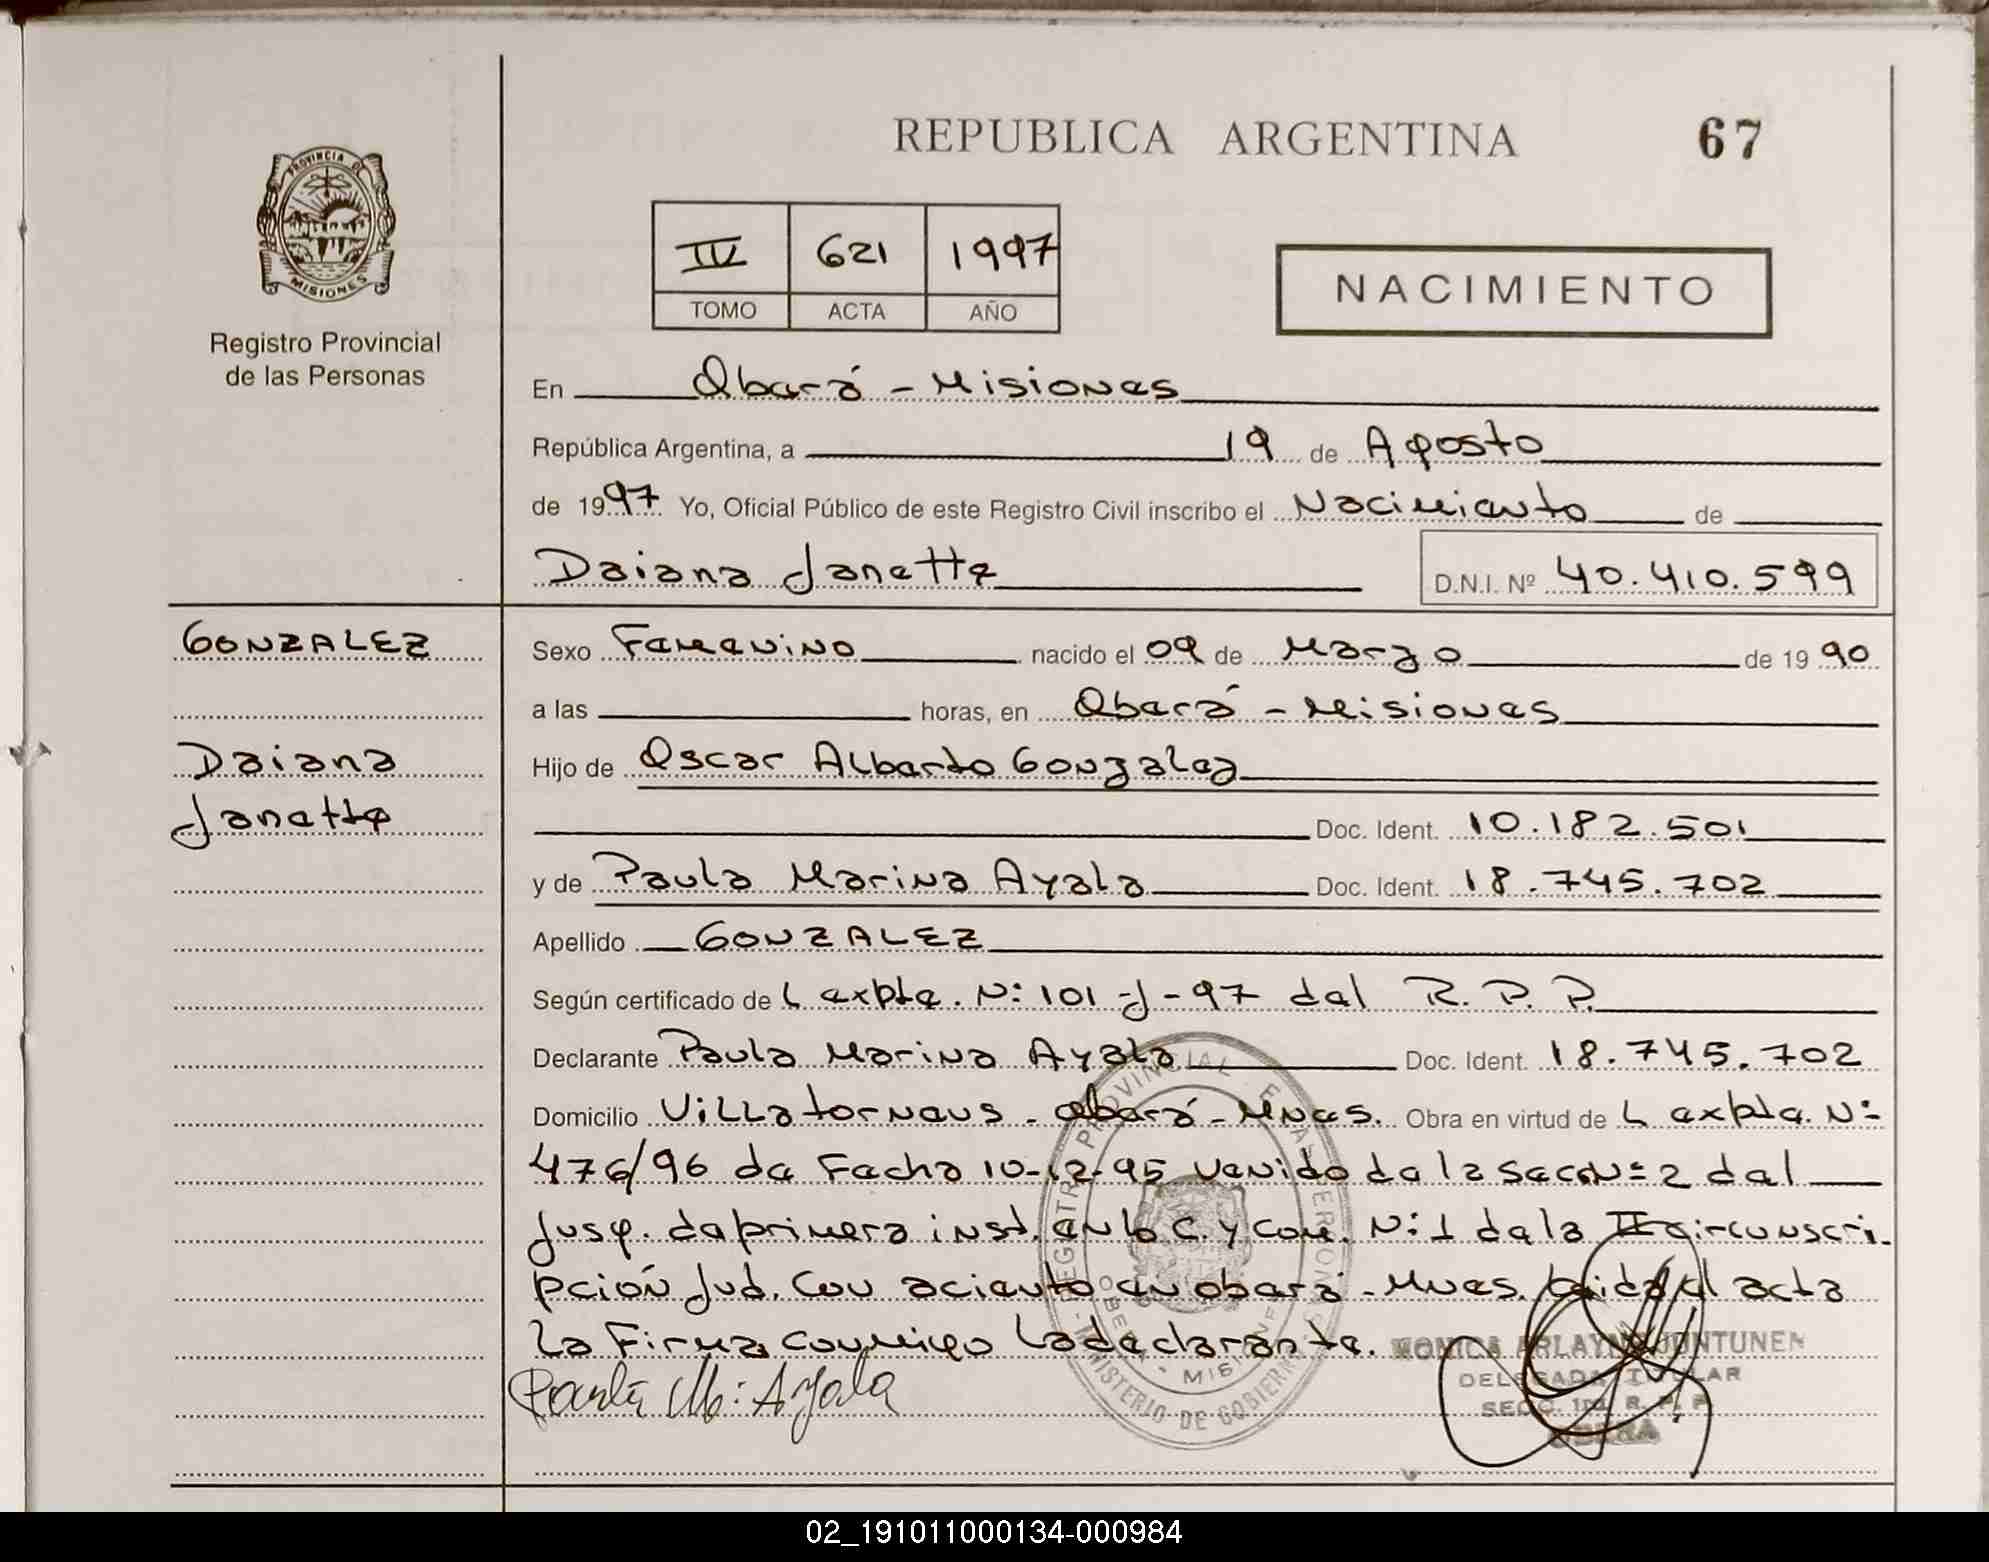 REPUBLICA ARGENTINA
67
PROVINCIA DE
MISIONES
Registro Provincial
de las Personas
IV 621 1997
TOMO ACTA AÑO
NACIMIENTO
En Oberá - Misiones
República Argentina, a 19 de Agosto
de 1997. Yo, Oficial Público de este Registro Civil inscribo el Nacimiento de
Daiana Janette D.N.I. Nº 40.410.599
GONZALEZ
Daiana
Janette
Sexo Femenino nacido el 09 de Marzo de 1990
a las horas, en Oberá - Misiones
Hijo de Oscar Alberto Gonzalez
Doc. Ident. 10.182.501
y de Paula Marina Ayala Doc. Ident. 18.745.702
Apellido GONZALEZ
Según certificado de L expte. Nº 101-J-97 del R. P. P.
Declarante Paula Marina Ayala Doc. Ident. 18.745.702
Domicilio Villa tornaus - Oberá - Mnes. Obra en virtud de L expte. Nº
476/96 de Fecha 10-12-95 venido de la Sec. Nº 2 del
Jusg. de primera inst. en lo C. y Com. Nº 1 de la II circunscri-
pción Jud. Con aciento en oberá - Mnes. Leida el acta
La Firma conmigo La declarante.
Paula M. Ayala
REGISTRO PROVINCIAL
MINISTERIO DE GOBIERNO
OBERA - MISIONES
MONICA ARLAYNE JUNTUNEN
DELEGADA TITULAR
SECC. R. P. P.
OBERA
02_191011000134-000984